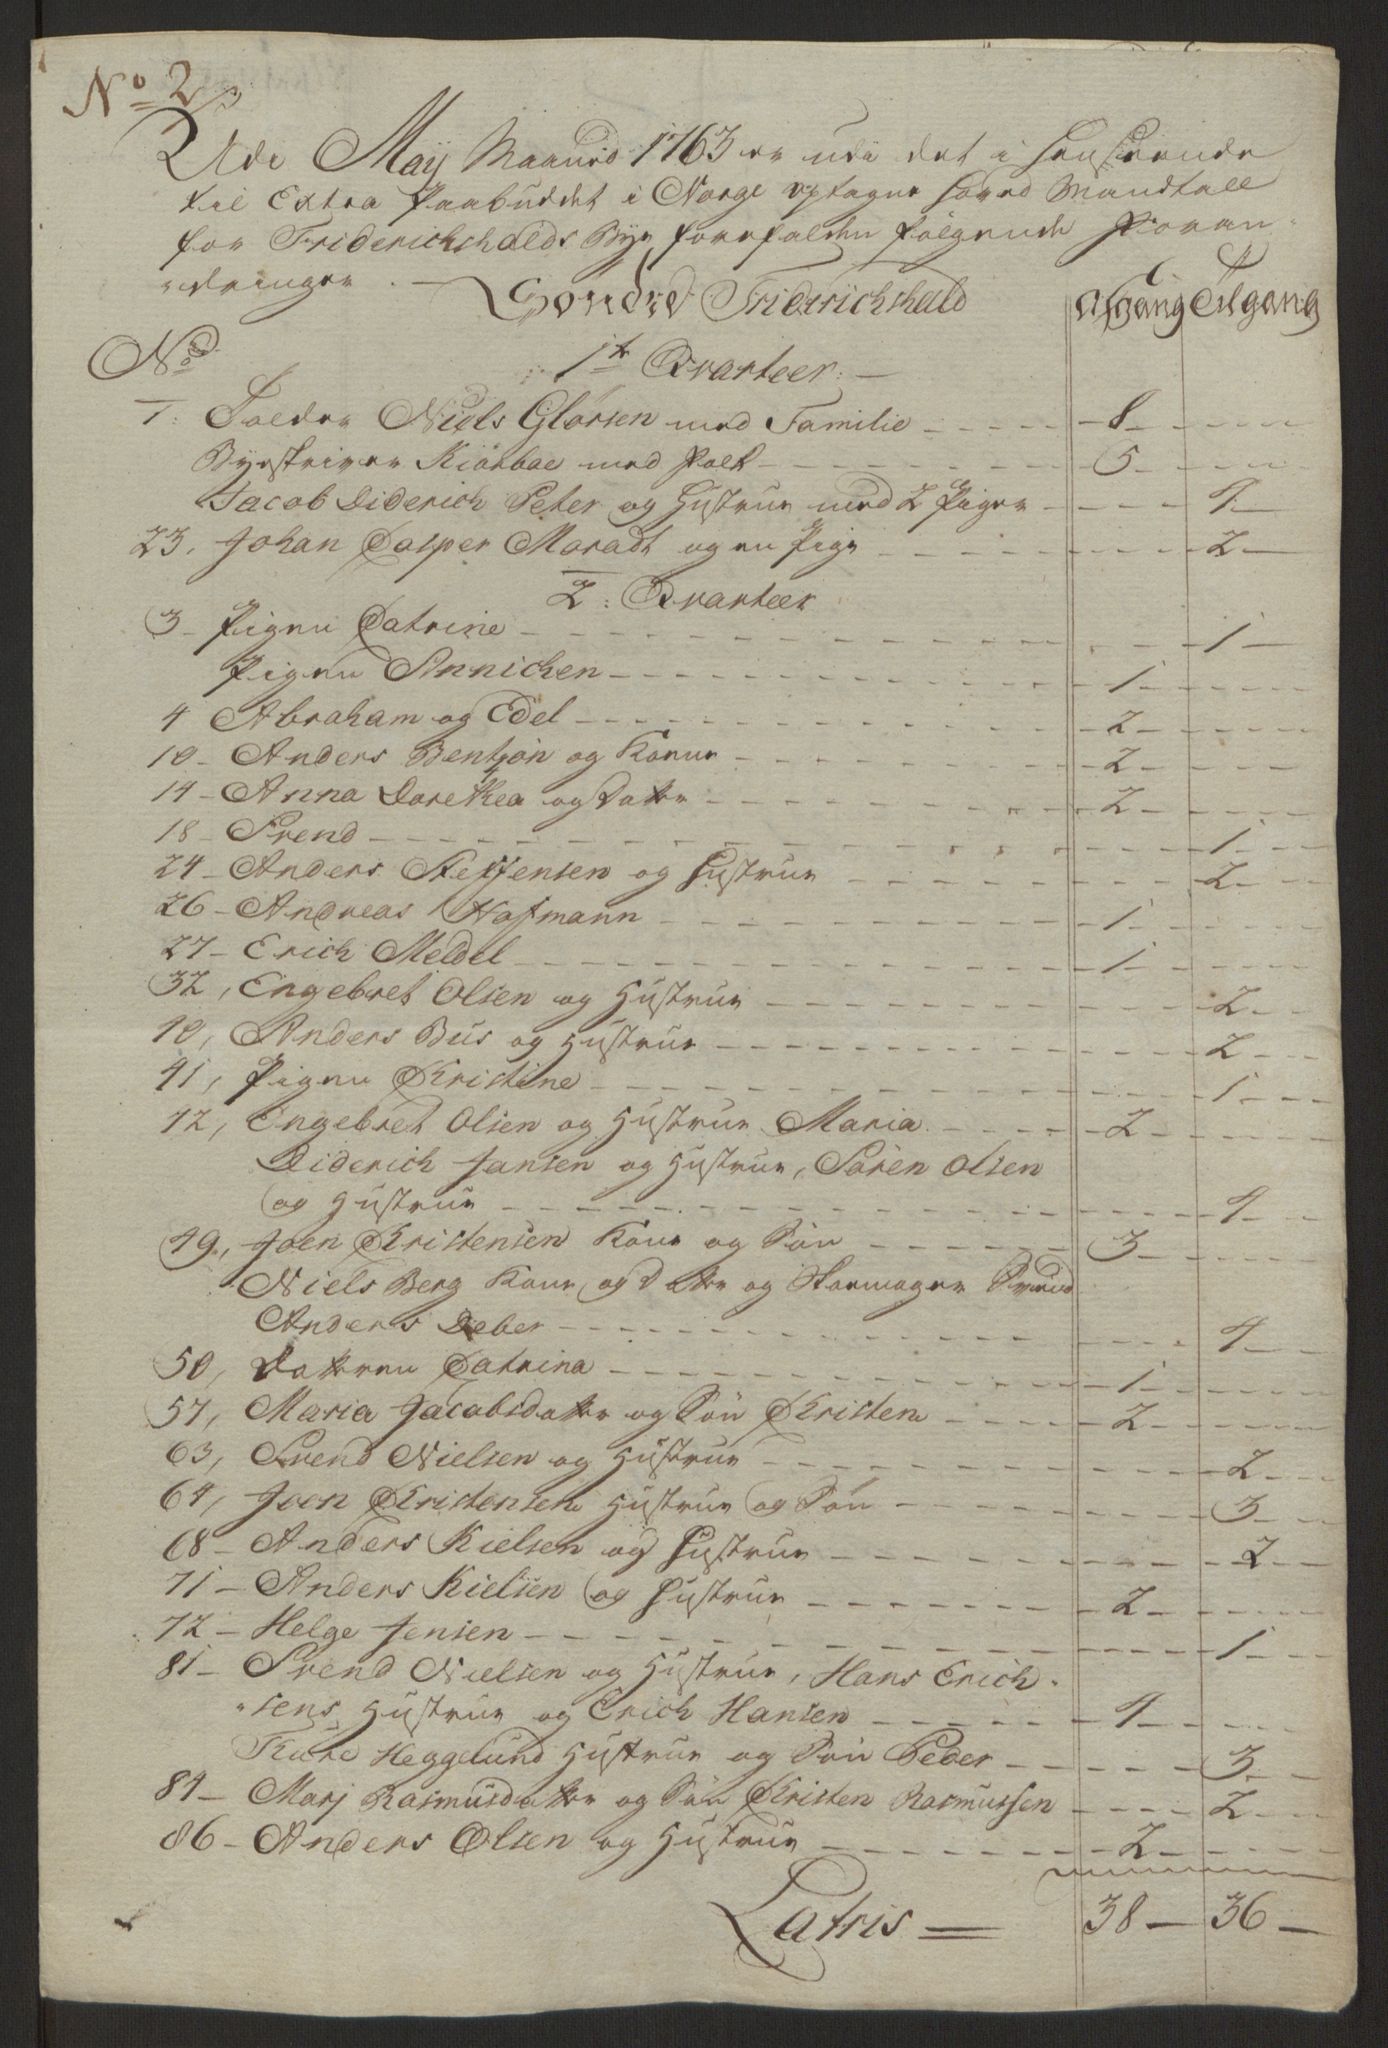 No 2
Udi Maij Maaned 1763 er udi det i henseende
til Extra Paabuddet i Norge optagne Hoved Mandtall
for Friderichshalds Bye forefalden følgende Foran-
-dringer. Sondre Friderichshald Afgang Tilgang
No
1te Qvarteer
1. Tolder Niels Glørsen med Familie 8
Byeskriver Kiørboe med Folk 5
Jacob Diderich Peter og Hustrue med 2 Piger 4
23, Johan Casper Maradt og en Pige 2
2: Qvarteer
3 Pigen Catrine 1
Pigen Annichen 1
4 Abraham og Edel 2
10 Anders Bentzon og Kone 2
14 Anna Dorethea og Datter 2
18 Svend 1
24 Anders Steffensen og Hustrue 2
26 Andreas Hofmann 1
27 Erich Meldel 1
32, Engebret Olsen og Hustrue 2
40, Anders Bus og Hustrue 2
41, Pigen Kristine 1
42, Engebret Olsen og Hustrue Maria 2
Diderich Jansen og Hustrue, Søren Olsen
og Hustrue 4
49, Joen Kristensen Kone og Søn 3
Niels Berg Kone og Datter og Skomager Svend
Anders Deber 4
50, Datteren Catrina 1
57, Maria Jacobsdatter og Søn Kristen 2
63, Svend Nielsen og Hustrue 2
64, Joen Kristensen Hustrue og Søn 3
68 Anders Kielsen og Hustrue 2
71 Anders Kielsen og Hustrue 2
72 Helge Jensen 1
81 Svend Nielsen og Hustrue, Hans Erich-
-sens Hustrue og Erich Hansen 4
Ture Heggelund Hustrue og Søn Peder 3
84 Marj Rasmusdatter og Søn Kristen Rasmussen 2
86 Anders Olsen og Hustrue 2
Latris 38 36